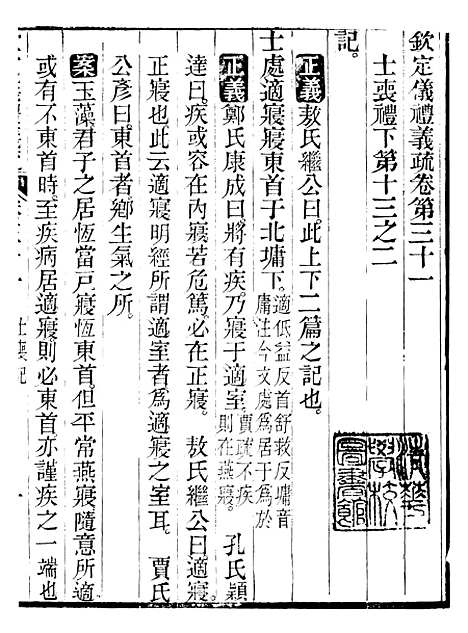 欽定儀禮義疏卷第三十一
士喪禮下第十三之二
記。
正義敖氏繼公曰。此上下二篇之記也。
士處適寢寢東首于北墉下。適低益反首舒救反墉音
庸注今文處為居于為於
正義鄭氏康成曰。將有疾。乃寢于適室。賈疏不疾
則在燕寢。孔氏穎
達曰。疾或容在內寢。若危篤。必在正寢。敖氏繼公曰。適寢。
正寢也。此云適寢。明經所謂適室者。為適寢之室耳。賈氏
公彥曰。東首者。鄉生氣之所。
案玉藻。君子之居恆當戶。寢恆東首。但平常燕寢。隨意所適。
或有不東首時。至疾病居適寢。則必東首。亦謹疾之一端也
士喪記